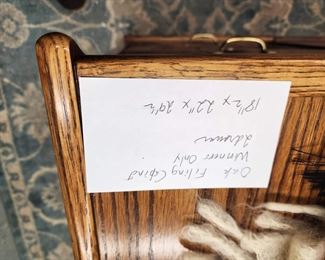 Oak Filing Cabint
Winner Only
2drawer
18"½ x 22" x 29½